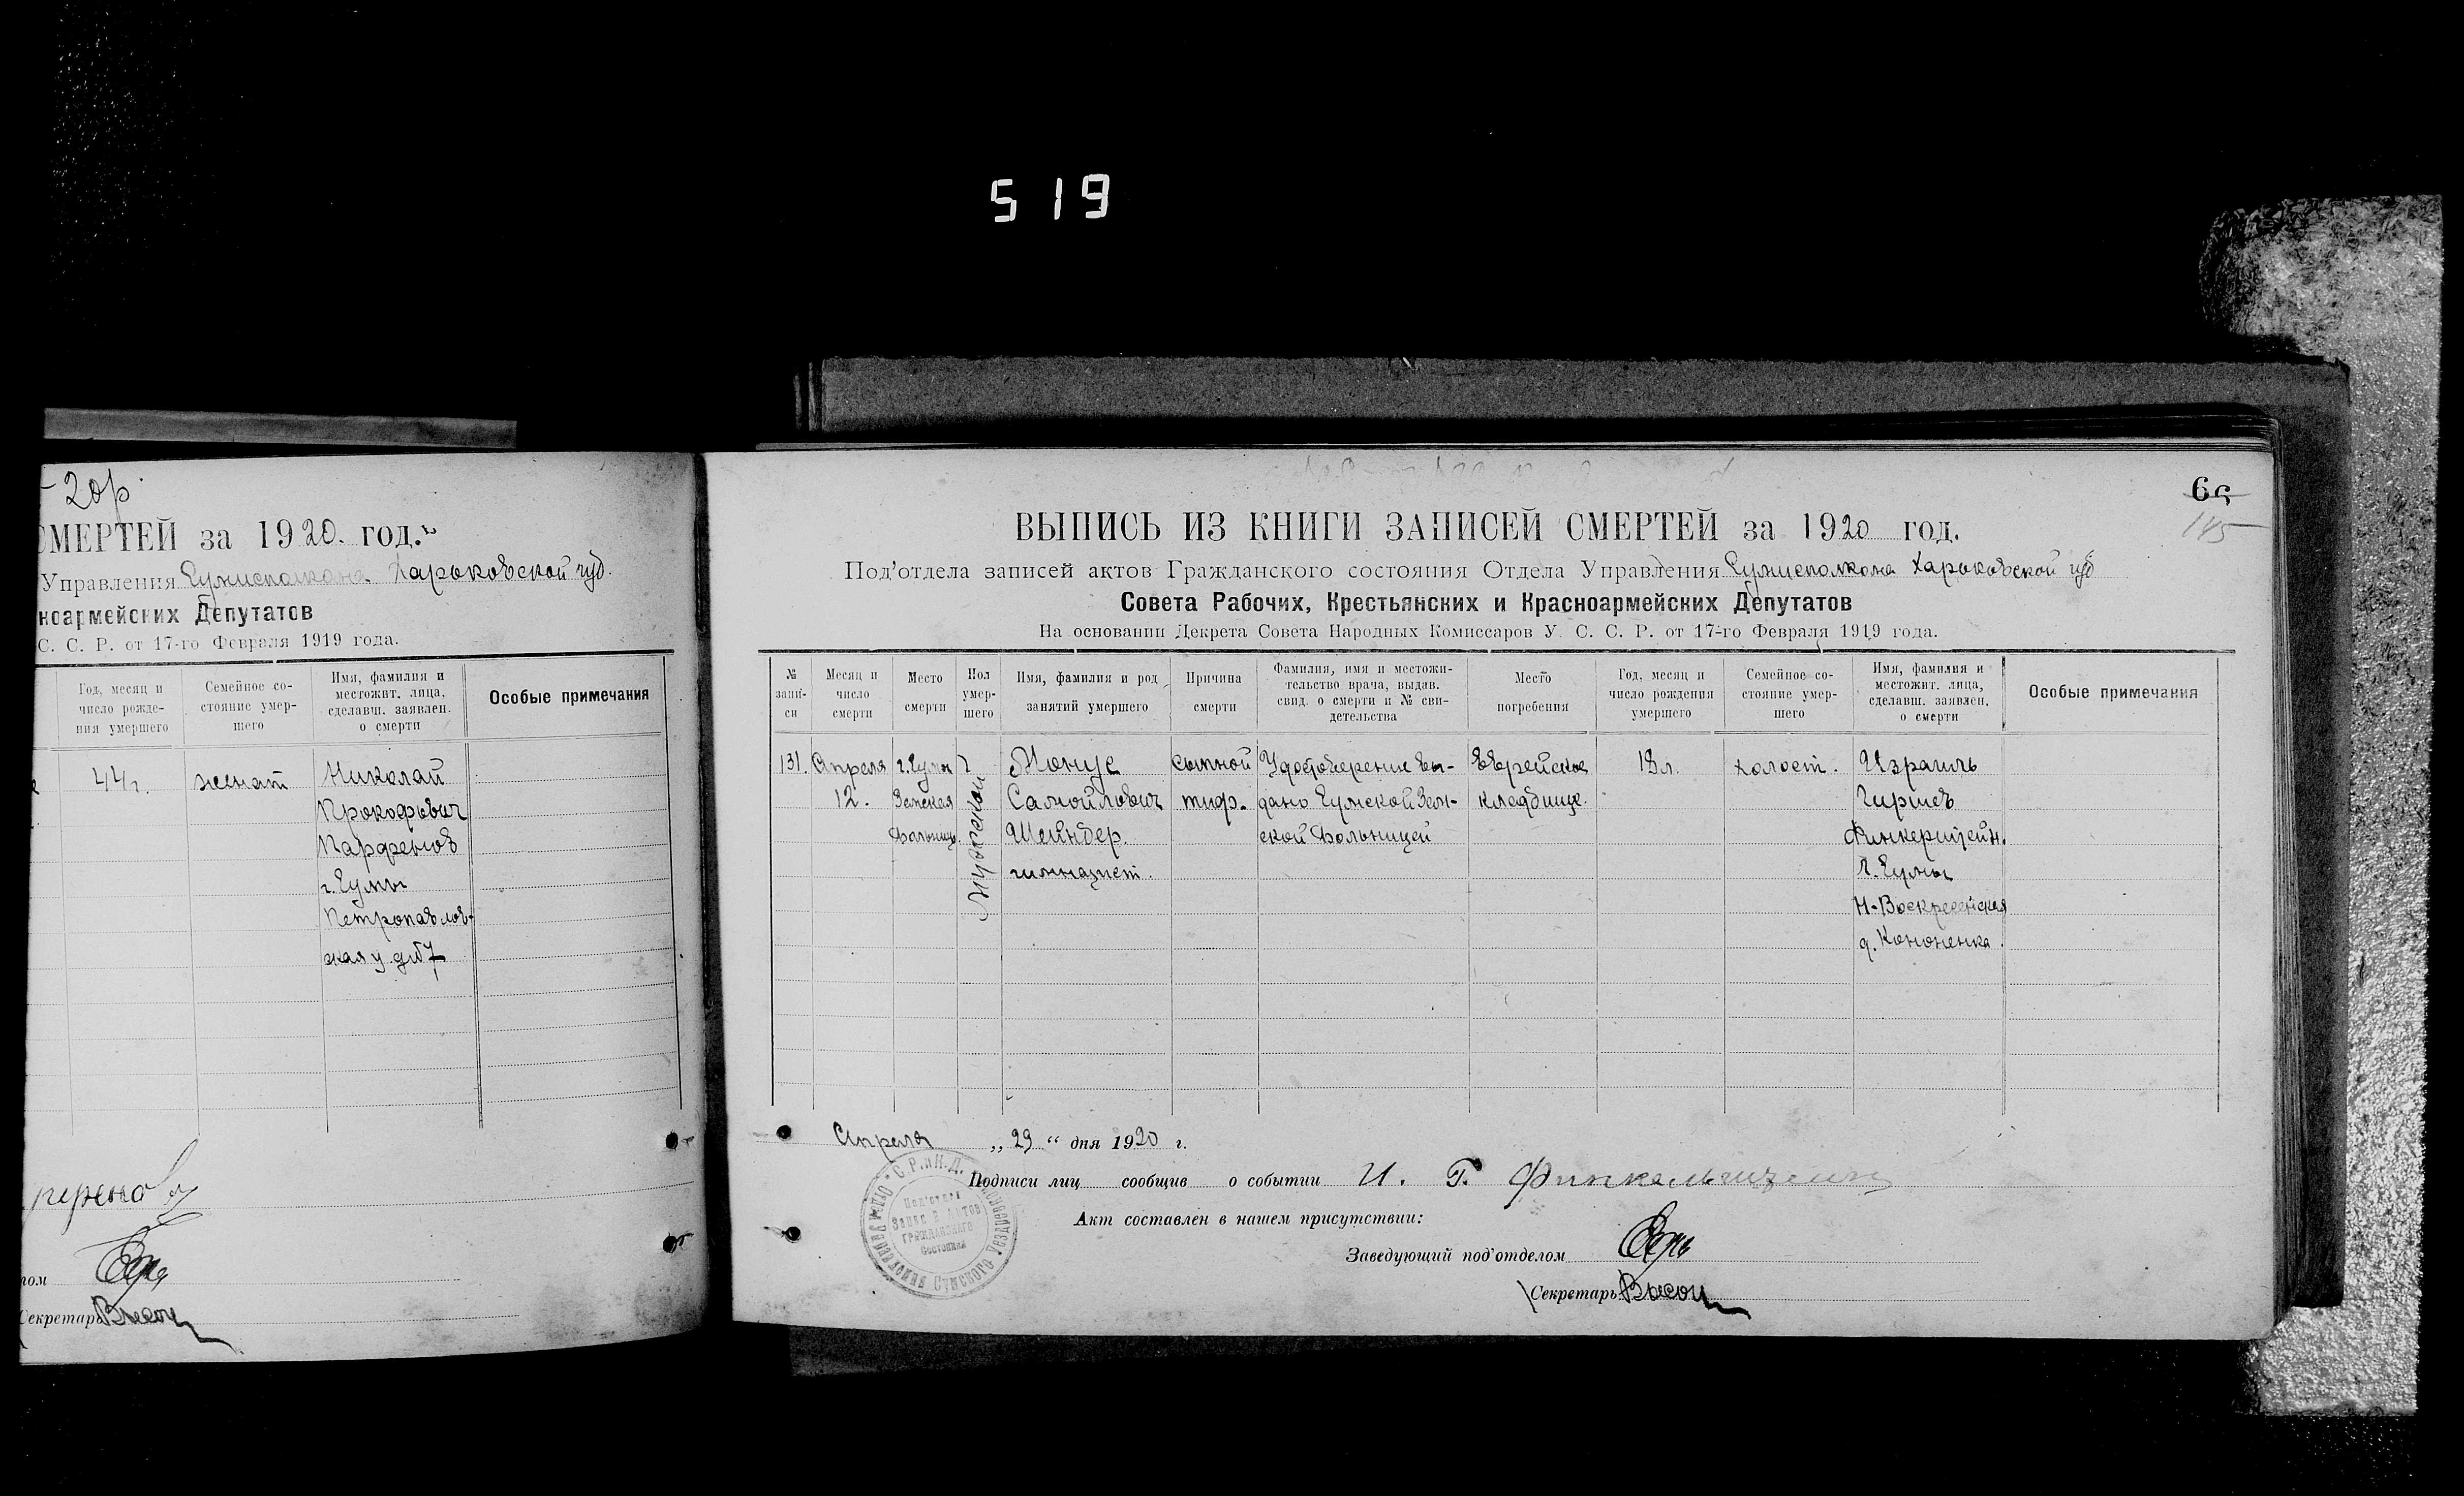 519
20р
СМЕРТЕЙ за 1920. год.
Управления Сумисполкома Харьковской губ.
ноармейских Депутатов
С. С. Р. от 17-го Февраля 1919 года.
Год, месяц и
число рожде-
ния умершего
Семейное со-
стояние умер-
шего
Имя, фамилия и
местожит. лица,
сделавш. заявлен.
о смерти
Особые примечания
44г.
женат
Николай
Прокофьевич
Парфенов
г. Сумы
Петропавлов-
ская у. д№7
Секретарь
66
145
ВЫПИСЬ ИЗ КНИГИ ЗАПИСЕЙ СМЕРТЕЙ за 1920 год.
Под'отдела записей актов Гражданского состояния Отдела Управления Сумисполкома Харьковской губ
Совета Рабочих, Крестьянских и Красноармейских Депутатов
На основании Декрета Совета Народных Комиссаров У. С. С. Р. от 17-го Февраля 1919 года.
№
запи-
си
Месяц и
число
смерти
Место
смерти
Пол
умер-
шего
Имя, фамилия и род
занятий умершего
Причина
смерти
Фамилия, имя и местожи-
тельство врача, выдав.
свид. о смерти и № сви-
детельства
Место
погребения
Год, месяц и
число рождения
умершего
Семейное со-
стояние умер-
шего
Имя, фамилия и
местожит. лица,
сделавш. заявлен.
о смерти
Особые примечания
131.
Апреля
12.
г. Сумы
Земская
больниц.
Мужеской
Монус
Самойлович
Шейнбер.
гимназист.
сыпной
тиф.
Удостоверение вы-
дано Сумской Зем-
ской больницей
Еврейское
кладбище.
18л.
холост.
Израиль
Гиршев
Финкерштейн.
г. Сумы
Н-Воскресенская
д. Кононенка.
Апреля „29“ дня 1920 г.
Подписи лиц сообщив о событии И. Г. Финкельштейн
Акт составлен в нашем присутствии:
Заведующий под'отделом
Секретарь